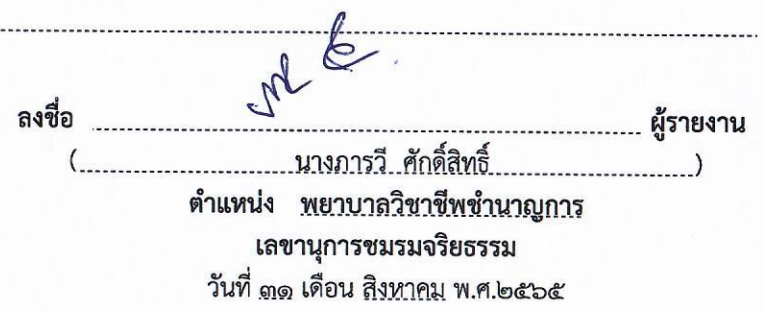 ลงชื่อ ผู้รายงาน
(นางภารวี ศักดิ์สิทธิ์)
ตำแหน่ง พยาบาลวิชาชีพชำนาญการ
เลขานุการชมรมจริยธรรม
วันที่ ๓๑ เดือน สิงหาคม พ.ศ.๒๕๖๕